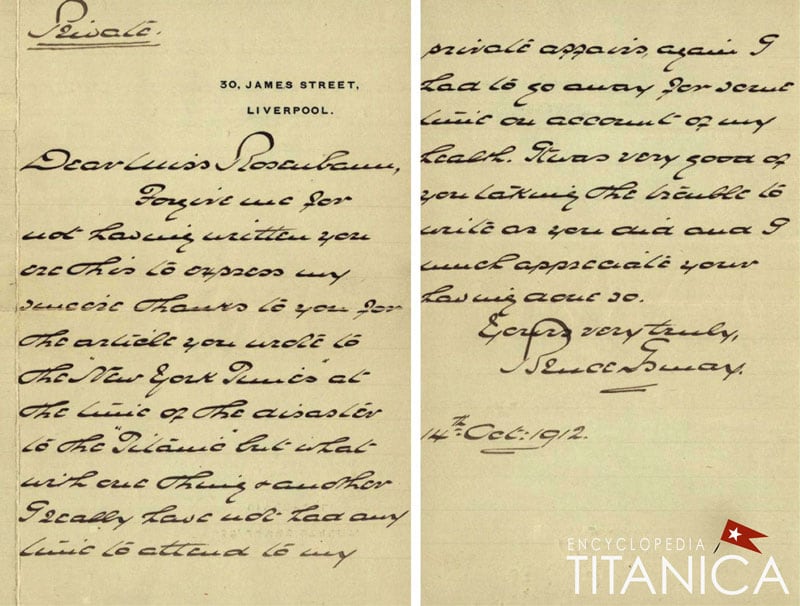 Private.
30, JAMES STREET,
LIVERPOOL.
Dear Miss Rosenbaum,
Forgive me for
not having written you
ere this to express my
sincere thanks to you for
the article you wrote to
the "New York Times" at
the time of the disaster
to the "Titanic" but what
with one thing & another
I really have not had any
time to attend to my
private affairs, again I
had to go away for some
time on account of my
health. It was very good of
you taking the trouble to
write as you did and I
much appreciate your
having done so.
Yours very truly,
Bruce Ismay.
14th Oct: 1912.
ENCYCLOPEDIA
TITANICA